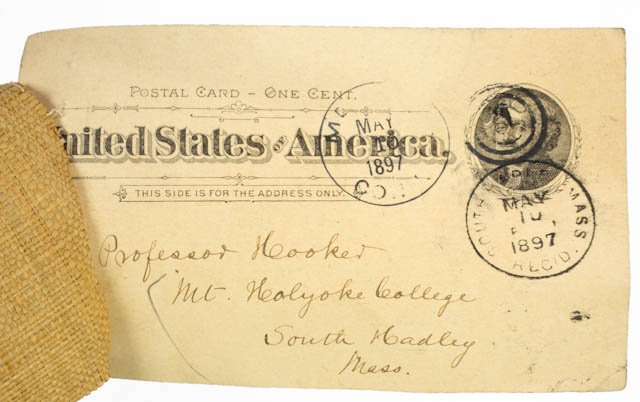 POSTAL CARD – ONE CENT.
United States of America.
THIS SIDE IS FOR THE ADDRESS ONLY.
MAY
18
1897
MAY
10
1897
SOUTH MASS.
REC'D.
Professor Hooker
Mt. Holyoke College
South Hadley
Mass.